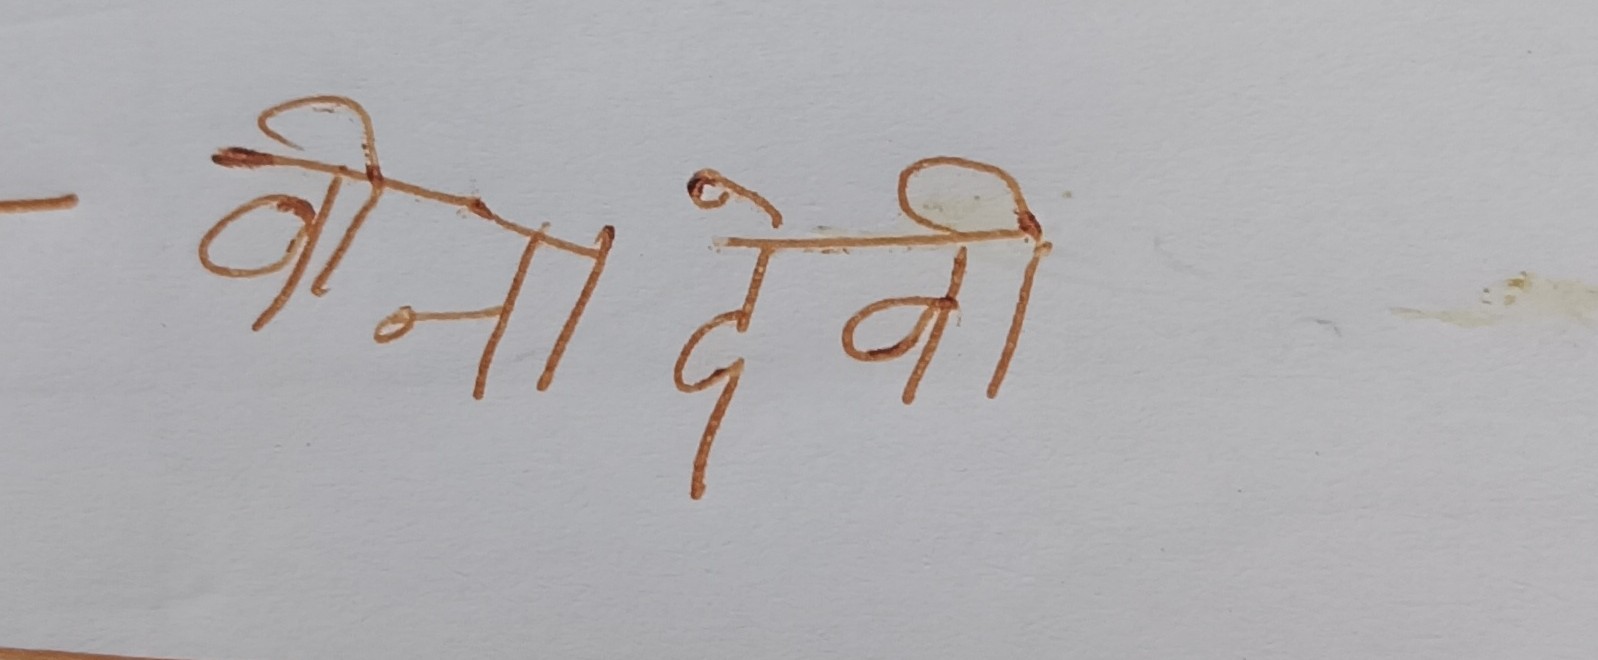 - वीना देवी